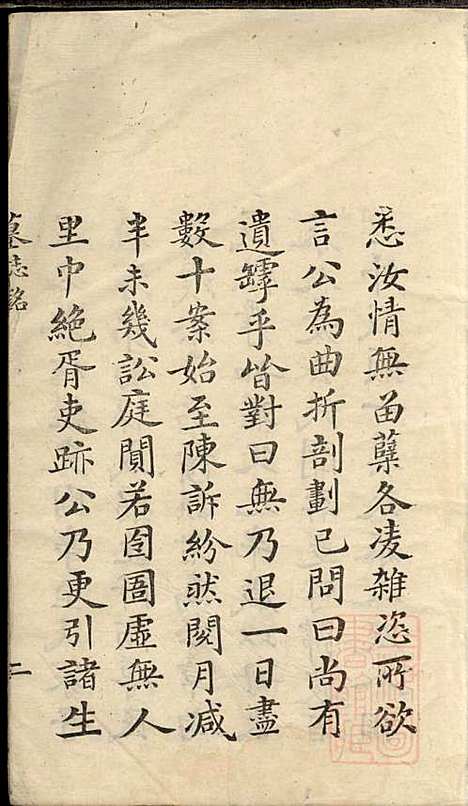 悉汝情無畱蘖各凌雜恣所欲
言公為曲折剖劃已問曰尚有
遺罅乎皆對曰無乃退一日盡
數十案始至陳訴紛然閱月減
半未幾訟庭閴若囹圄虛無人
里中絶胥吏跡公乃更引諸生
墓志銘
二